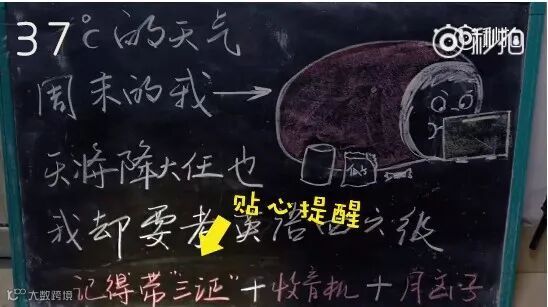 37℃的天气
秒拍
周末的我→
天将降大任也
贴心提醒
我却要考英语四六级
记得带"三证"+收音机+脑子
大数跨境